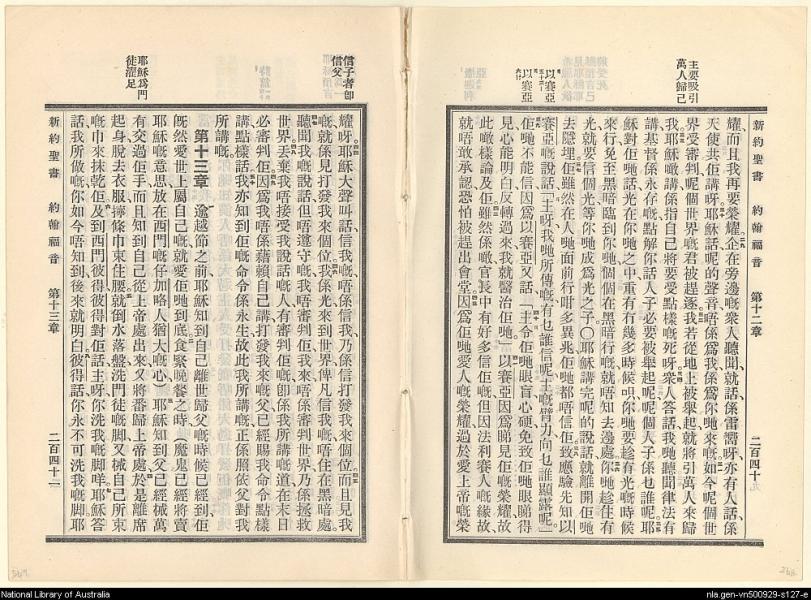 主要吸引
萬人歸己
以賽亞
以賽亞
新約聖書 約翰福音 第十二章 二百四十
耀而且我再要榮耀企在旁邊嘅衆人聽聞就話係雷響呀亦有人話係
天使共佢講呀耶穌話呢的聲音唔係爲我係爲你哋來嘅如今呢個世
界受審判呢個世界嘅君被趕逐我若從地上被舉起就將引萬人來歸
我耶穌噉講係指自己將要受點樣嘅死呀衆人答話我哋聽聞律法有
講基督係永存嘅點解你話人子必要被舉起呢呢個人子係乜誰呢耶
穌對佢哋話光在你哋之中重有有幾多時候唄你哋要趁有光嘅時候
來行免至黑暗臨到你哋個個在黑暗行嘅就唔知去邊處你哋趁住有
光就要信個光等你哋成爲光之子〇耶穌講完呢的說話就離開佢哋
去隱埋佢雖然在人哋面前行咁多異兆佢哋都唔信佢致應驗先知以
賽亞嘅說話「主呀我哋所傳嘅有乜誰信呢主嘅臂力向乜誰顯露呢」
佢哋不能信因爲以賽亞又話「主令佢哋眼盲心硬免致佢哋眼睇得
見心能明白反轉過來我就醫治佢哋」以賽亞因爲睇見佢嘅榮耀故
此噉樣論及佢雖然係噉官長中有好多信佢嘅但因法利賽人嘅緣故
就唔敢承認恐怕被趕出會堂因爲佢哋愛人嘅榮耀過於愛上帝嘅榮
信子者卽
信父
耶穌爲門
徒濯足
耀呀耶穌大聲叫話信我嘅唔係信我乃係信打發我來個位而且見我
嘅就係見打發我來個位我係光來到世界俾凡信我嘅唔住在黑暗處
聽聞我嘅說話但唔遵守嘅我唔審判佢我來唔係審判世界乃係拯救
世界丟棄我唔接受我說話嘅人有審判佢嘅卽係我所講嘅道在末日
必審判佢因爲我唔係藉賴自己講打發我來嘅父已經賜我命令點樣
講點樣話我亦知到佢嘅命令係永生故此我所講嘅正係照依父對我
所講嘅
第十三章 逾越節之前耶穌知到自己離世歸父嘅時候已經到佢
旣然愛世上屬自己嘅就愛佢哋到底食緊晚餐之時（魔鬼已經將賣
耶穌嘅意思放在西門嘅仔加畧人猶大嘅心）耶穌知到父已經械萬
有交過佢手而且知到自己從上帝處出來又將番歸上帝處於是離席
起身脫去衣服擰條巾束住腰就倒水落盤洗門徒嘅脚又械自己所束
嘅巾來抹乾佢及到西門彼得彼得對佢話主呀你洗我嘅脚咩耶穌答
話我所做嘅你如今唔知到後來就明白彼得話你永不可洗我嘅脚耶
新約聖書 約翰福音 第十三章 二百四十二
National Library of Australia
nla.gen-vn500929-s127-e